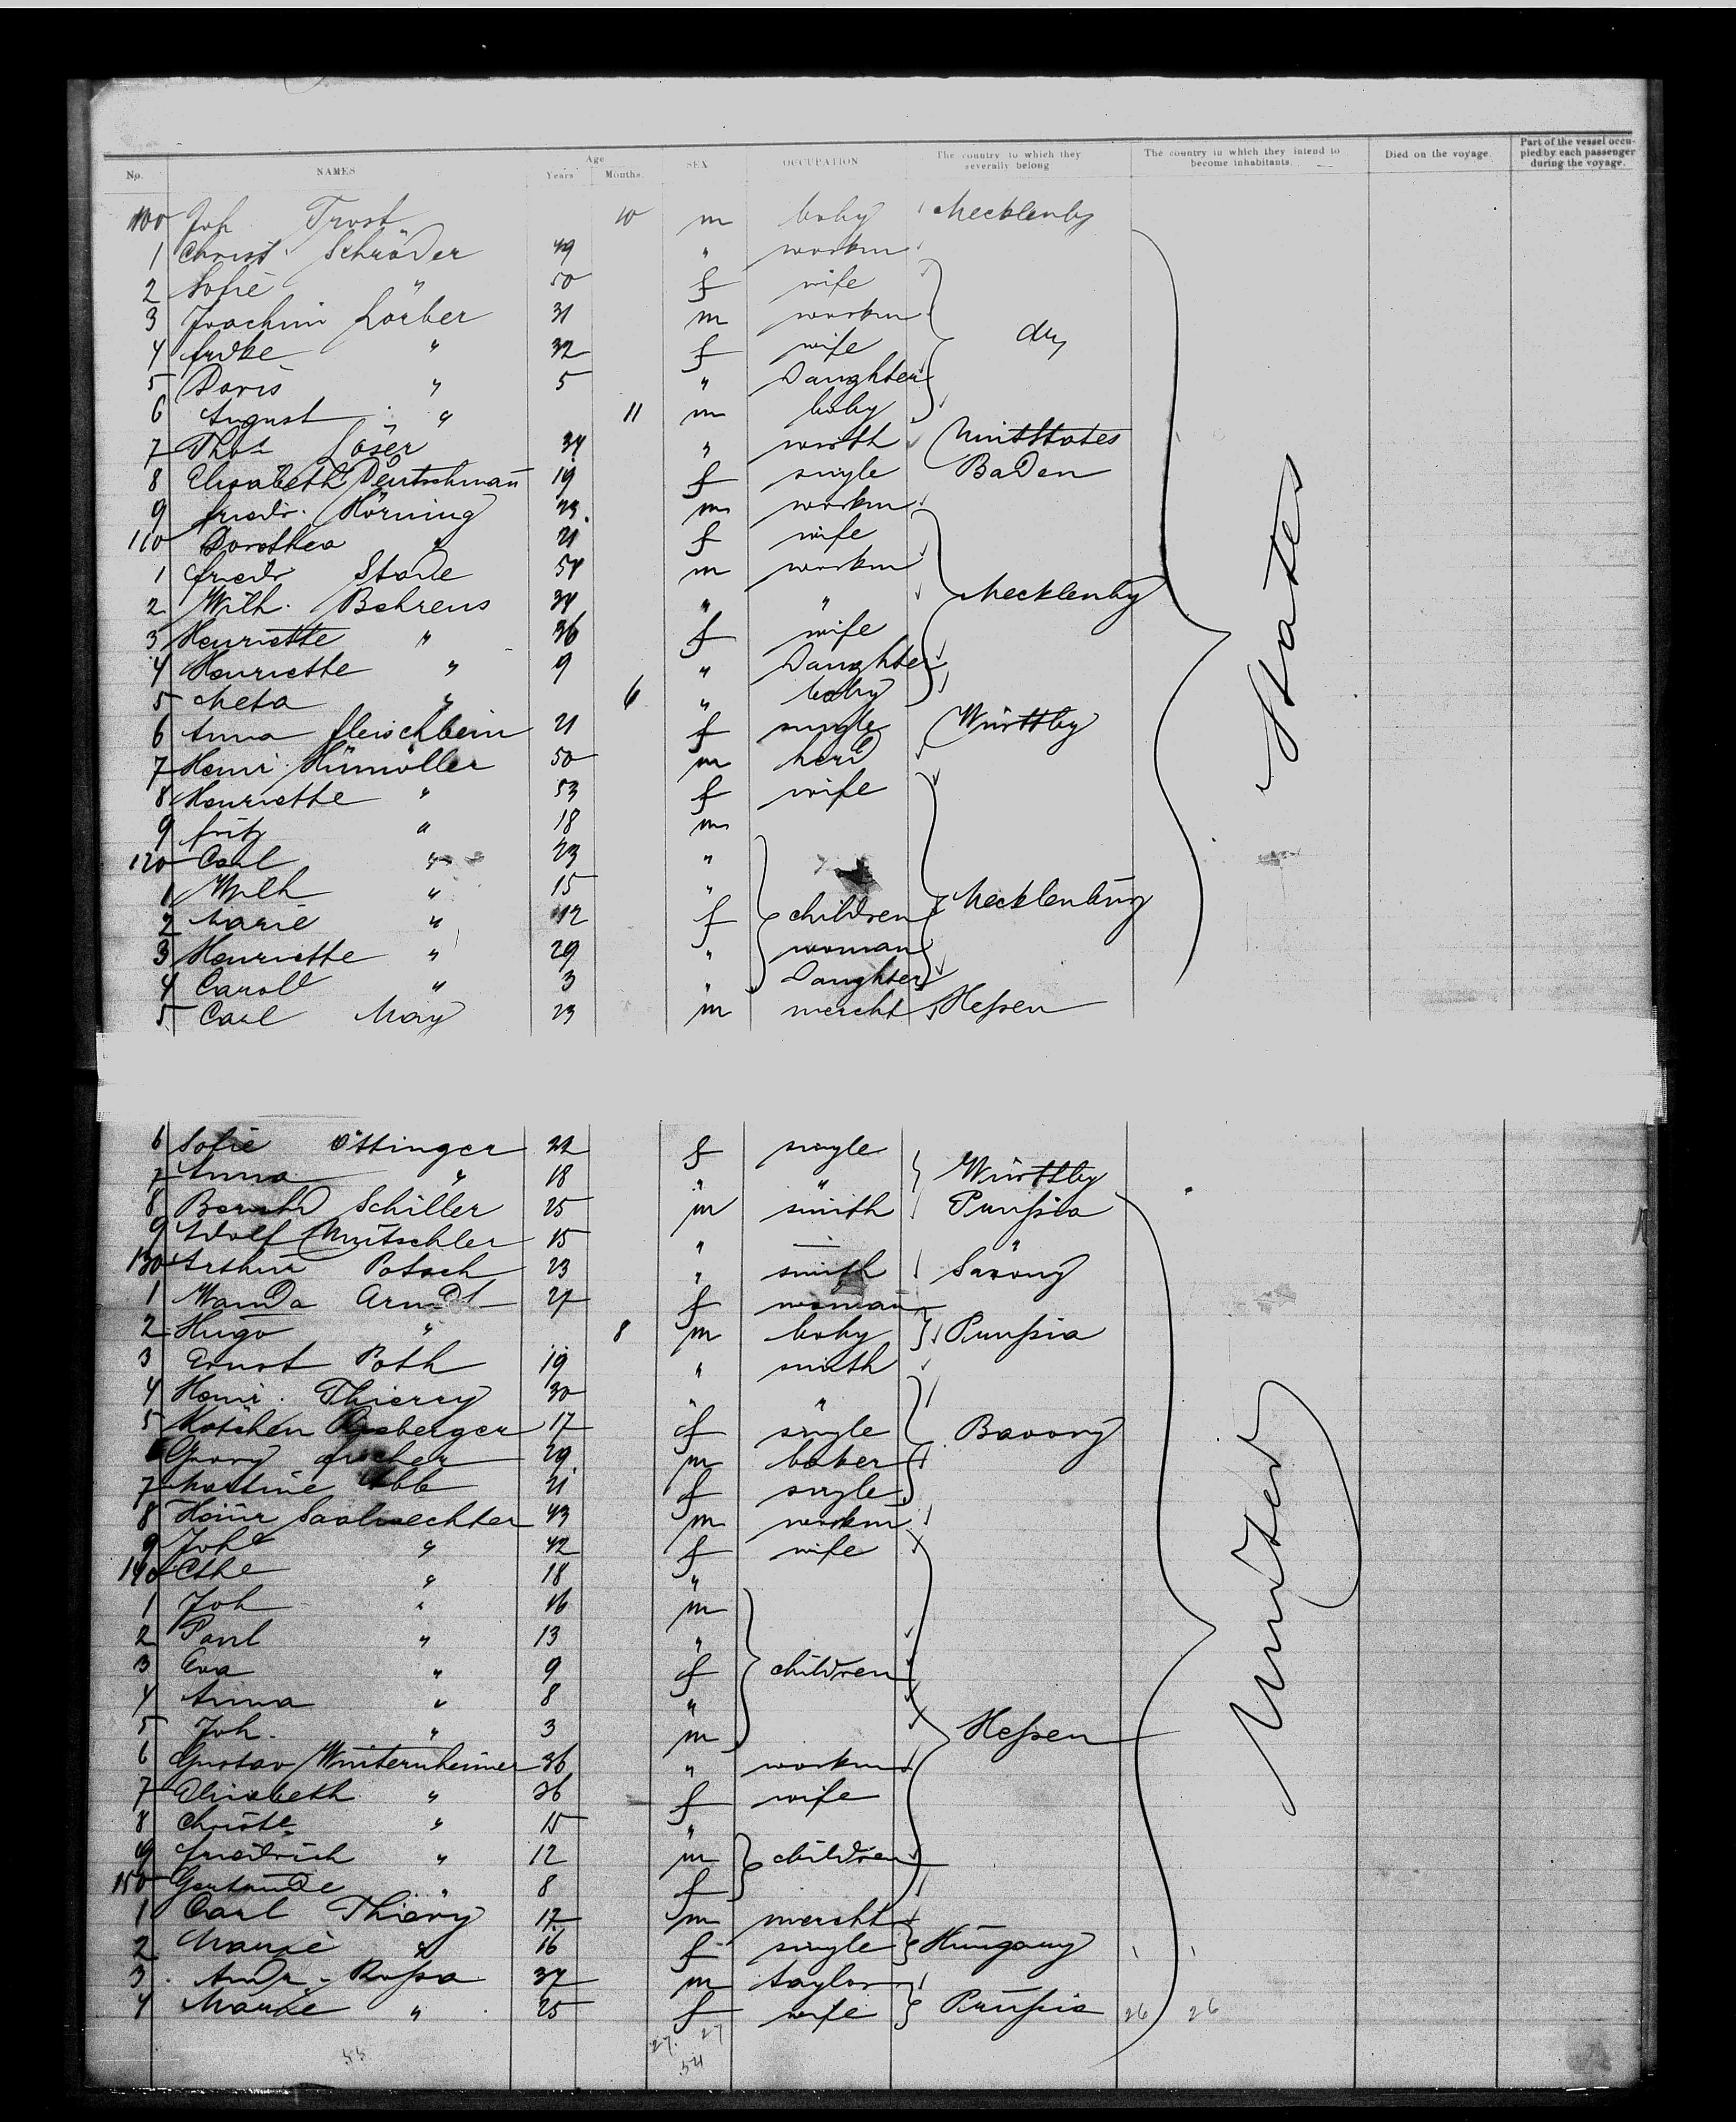 No. NAMES Age Years Months. SEX OCCUPATION The country to which they severally belong The country in which they intend to become inhabitants. Died on the voyage. Part of the vessel occupied by each passenger during the voyage.
100 Joh Trost 10 m baby Mecklenbg
1 Christ. Schröder 49 " workm
2 Sofie " 50 f wife
3 Joachim Lörber 31 m workm
4 Fridke " 32 f wife
5 Doris " 5 " Daughter
6 August " 11 m baby
7 Löser 34 "
8 Elisabeth Deutschmañ 19 f single Baden
9 Friedr. Hörning 23 m workm
110 Dorothea " 21 f wife
1 Friedr Stade 54 m workm
2 Wilh. Behrens 34 " " Mecklenbg
3 Henriette " 36 f wife
4 Henriette " 9 " Daughter
5 Meta " 6 " baby
6 Anna Fleischbein 21 f single Württbg
7 Henr. Hümöller 50 m herd
8 Henriette " 53 f wife
9 Fritz " 18 m
120 Carl " 23 "
1 Wilh " 15 "
2 Marie " 12 f children Mecklenburg
3 Henriette " 29 " woman
4 Caroll " 3 " Daughter
5 Carl May 23 m mercht Heſsen
States
6 Sofie Öttinger 22 f single
7 Anna " 18 " " Württbg
8 Bernhd Schiller 25 m smith Pruſsia
9 Adolf Mutschler 15 " — "
130 Arthur Potsch 23 " smith Saxony
1 Wanda Arndt 27 f woman
2 Hugo " 8 m baby Pruſsia
3 Ernst Poth 19 " smith
4 Henr. Thierry 30 " "
5 Kätchen 17 f single Bavory
6 Georg 29 m baker
7 Martine Abb 21 f single
8 Heinr Saalwechter 43 m workm
9 Johe " 42 f wife
140 Cthe " 18 "
1 Joh " 16 m
2 Paul " 13 "
3 Eva " 9 f children
4 Anna " 8 "
5 Joh. " 3 m Heſsen
6 Gustav Winternheimer 36 " workm
7 Elisabeth " 36 f wife
8 Christe " 15 "
9 Friedrich " 12 m children
150 Gertrude " 8 f
1 Carl Thiery 17 m mercht
2 Marie " 16 f single Hungary
3 Andr. Roſsa 37 m taylor
4 Marie " 25 f wife Pruſsia 26 26
United
55 27. 27
54